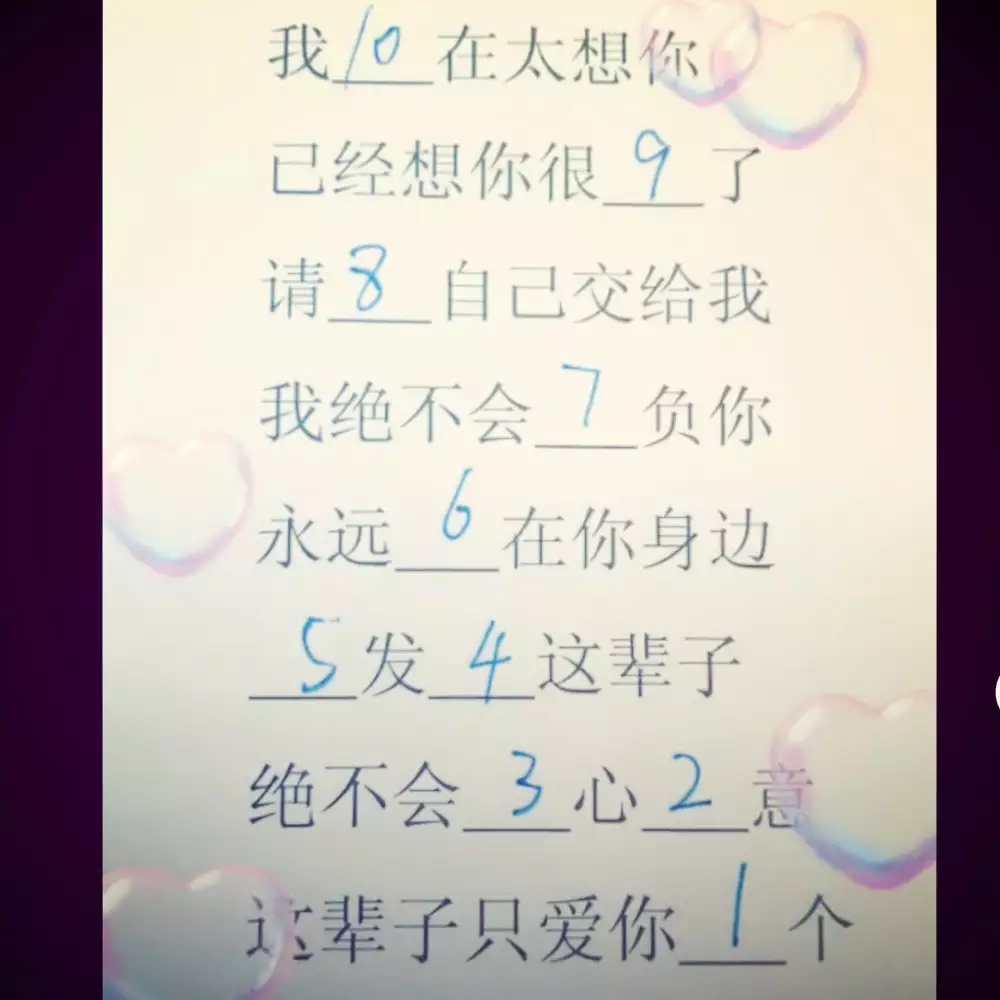 我10在太想你
已经想你很9了
请8自己交给我
我绝不会7负你
永远6在你身边
5发4这辈子
绝不会3心2意
这辈子只爱你1个